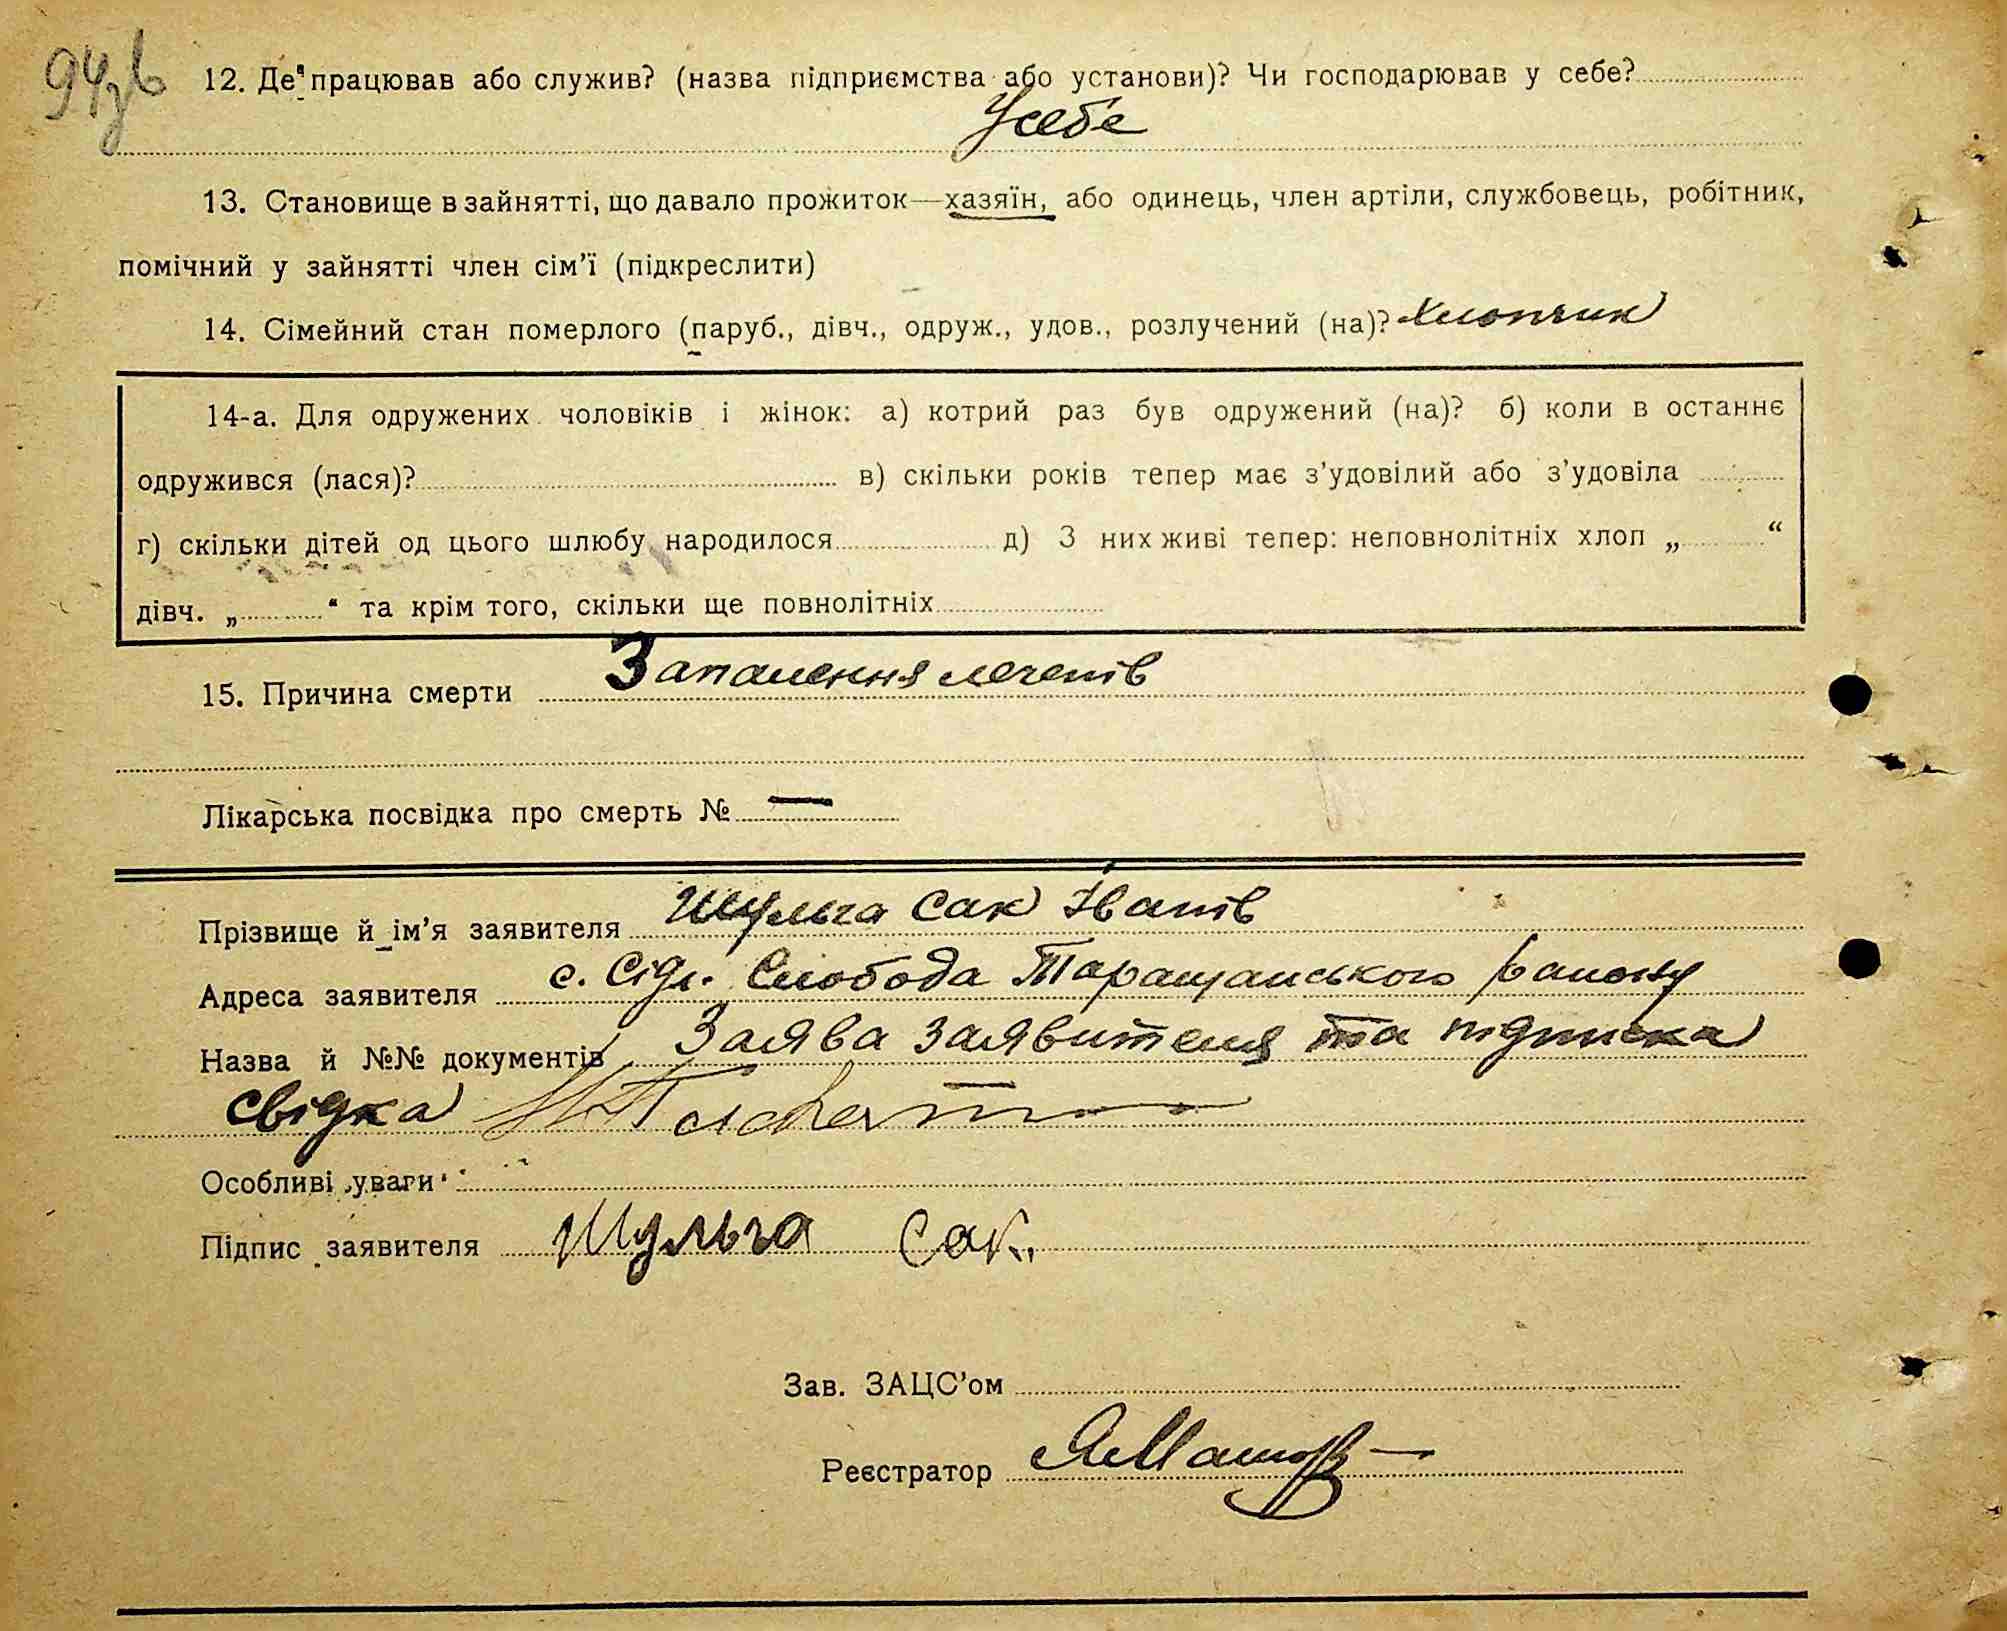 94зв
12. Де працював або служив? (назва підприємства або установи)? Чи господарював у себе?
У себе
13. Становище в зайнятті, що давало прожиток—хазяїн, або одинець, член артіли, службовець, робітник,
помічний у зайнятті член сім'ї (підкреслити)
14. Сімейний стан померлого (паруб., дівч., одруж., удов., розлучений (на)? Хлопчик
14-а. Для одружених чоловіків і жінок: а) котрий раз був одружений (на)? б) коли в останнє
одружився (лася)? в) скільки років тепер має з'удовілий або з'удовіла
г) скільки дітей од цього шлюбу народилося д) З них живі тепер: неповнолітніх хлоп „ “
дівч. „ “ та крім того, скільки ще повнолітніх
15. Причина смерти Запалення легенів
Лікарська посвідка про смерть № —
Прізвище й ім'я заявителя Шульга Сак Іванів
Адреса заявителя с. Слобода Таращанського району
Назва й №№ документів Заява заявителя та підписка
свідка
Особливі уваги
Підпис заявителя Шульга Сак.
Зав. ЗАЦС'ом
Реєстратор